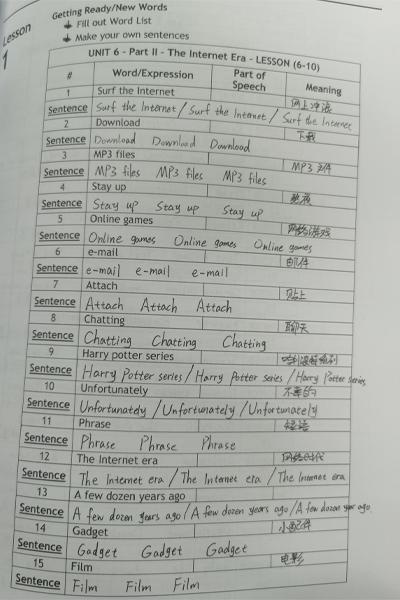 Lesson
1
Getting Ready/New Words
Fill out Word List
Make your own sentences
UNIT 6 - Part II - The Internet Era - LESSON (6-10)
# Word/Expression Part of Speech Meaning
1 Surf the Internet 网上冲浪
Sentence Surf the Internet / Surf the Internet / Surf the Internet
2 Download 下载
Sentence Download Download Download
3 MP3 files MP3文件
Sentence MP3 files MP3 files MP3 files
4 Stay up 熬夜
Sentence Stay up Stay up Stay up
5 Online games 网络游戏
Sentence Online games Online games Online games
6 e-mail 邮件
Sentence e-mail e-mail e-mail
7 Attach 贴上
Sentence Attach Attach Attach
8 Chatting 聊天
Sentence Chatting Chatting Chatting
9 Harry potter series 哈利波特系列
Sentence Harry Potter series / Harry Potter series / Harry Potter series
10 Unfortunately 不幸的
Sentence Unfortunately / Unfortunately / Unfortunately
11 Phrase 短语
Sentence Phrase Phrase Phrase
12 The Internet era 网络时代
Sentence The Internet era / The Internet era / The Internet era
13 A few dozen years ago
Sentence A few dozen years ago / A few dozen years ago / A few dozen years ago
14 Gadget 小配件
Sentence Gadget Gadget Gadget
15 Film 电影
Sentence Film Film Film